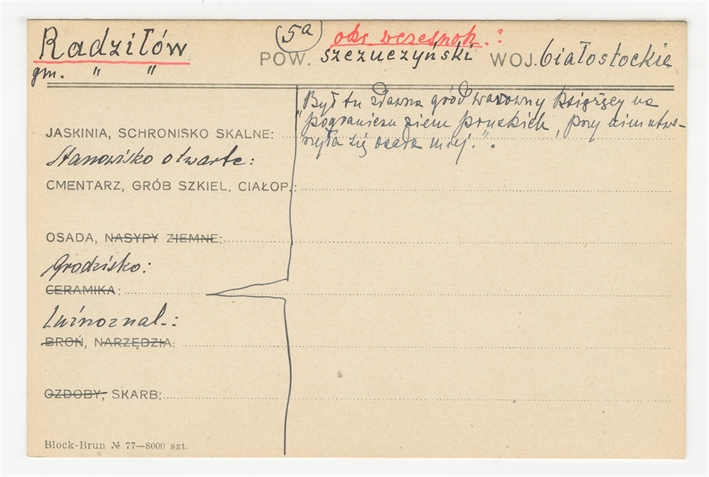 Radziłów
gm. " "
5a
okr. wczespok. ?
POW. Szczuczyński WOJ. białostockie
"Był tu zdawna gród warowny książęcy na
pograniczu ziem pruskich, przy nim utwo-
rzyła się osada miej.".
JASKINIA, SCHRONISKO SKALNE:
Stanowisko otwarte:
CMENTARZ, GRÓB SZKIEL. CIAŁOP.:
OSADA, NASYPY ZIEMNE:
Grodzisko:
CERAMIKA:
Luźnoznal.:
BROŃ, NARZĘDZIA:
OZDOBY, SKARB:
Block-Brun № 77—8000 szt.